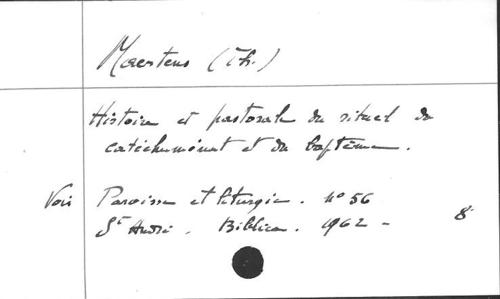 Maertens (Th.)
Histoire et pastorale du rituel du
catéchuménat et du baptême.
Voir Paroisse et liturgie. n° 56
St André. Biblica. 1962 - 8°